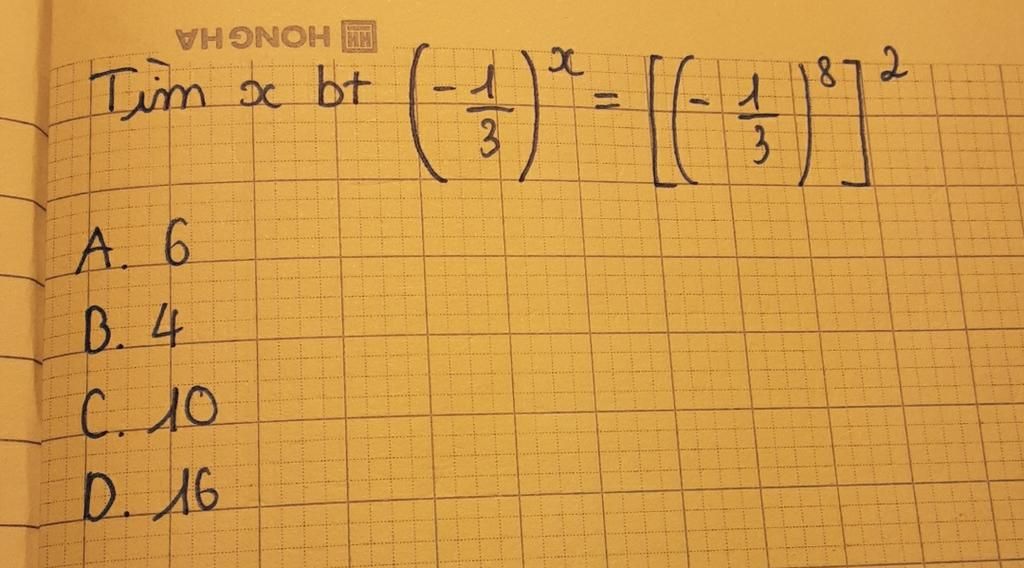 HONG HA
Tìm x bt (-1/3)^x = [(-1/3)^8]^2
A. 6
B. 4
C. 10
D. 16